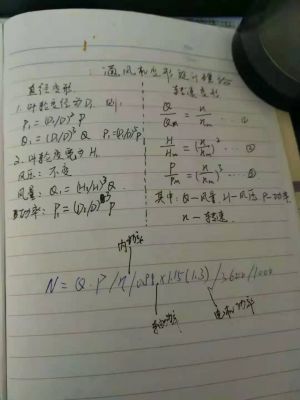 通风机变形设计理论
直径变形
1. 叶轮直径为D₁ 则:
P₁=(D₁/D)² P
Q₁=(D₁/D)³ Q P₁=(D₁/D)⁵P
2. 叶轮宽度为H₁
风压: 不变
风量: Q₁=(H₁/H)³Q
功率: P₁=(D₁/D)³P
转速变形
Q/Qm = n/nm ... ①
H/Hm = (n/nm)² ... ②
P/Pm = (n/nm)³ ... ③
其中: Q—风量 H—风压 P—功率
n—转速
内功率
N = Q·P/η/0.98×1.15(1.3)/3600/1000
轴功率
电机功率